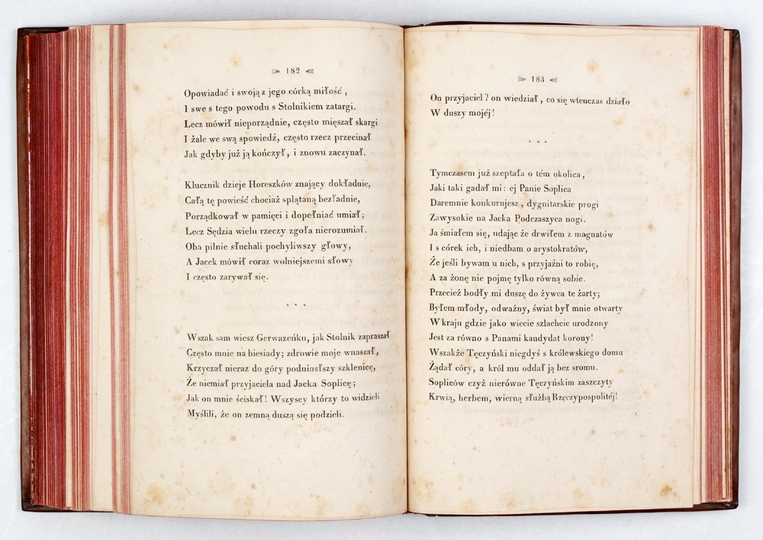 182
Opowiadać i swoją z jego córką miłość,
I swe s tego powodu s Stolnikiem zatargi.
Lecz mówił nieporządnie, często mięszał skargi
I żale we swą spowiedź, często rzecz przecinał
Jak gdyby już ją kończył, i znowu zaczynał.
Klucznik dzieje Horeszków znający dokładnie,
Całą tę powieść chociaż splątaną bezładnie,
Porządkował w pamięci i dopełniać umiał;
Lecz Sędzia wielu rzeczy zgoła nierozumiał.
Oba pilnie słuchali pochyliwszy głowy,
A Jacek mówił coraz wolniejszemi słowy
I często zarywał się.
* * *
Wszak sam wiesz Gerwazeńku, jak Stolnik zapraszał
Często mnie na biesiady; zdrowie moje wnaszał,
Krzyczał nieraz do góry podniosłszy szklenicę,
Że niemiał przyjaciela nad Jacka Soplicę;
Jak on mnie ściskał! Wszyscy którzy to widzieli
Myślili, że on zemną duszą się podzieli.
183
On przyjaciel? on wiedział, co się wtenczas działo
W duszy mojéj!
* * *
Tymczasem już szeptała o tém okolica,
Jaki taki gadał mi: ej Panie Soplica
Daremnie konkurujesz, dygnitarskie progi
Zawysokie na Jacka Podczaszyca nogi.
Ja śmiałem się, udając że drwiłem z magnatów
I s córek ich, i niedbam o arystokratów,
Że jeśli bywam u nich, s przyjaźni to robię,
A za żonę nie pojmę tylko równą sobie.
Przecież bodły mi duszę do żywca te żarty;
Byłem młody, odważny, świat był mnie otwarty
W kraju gdzie jako wiecie szlachcic urodzony
Jest za równo s Panami kandydat korony!
Wszakże Tęczyński niegdyś s królewskiego domu
Żądał córy, a król mu oddał ją bez sromu.
Sopliców czyż nierówne Tęczyńskim zaszczyty
Krwią, herbem, wierną służbą Rzeczypospolitéj!